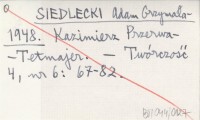 SIEDLECKI Adam Grzymała-
1948. Kazimierz Przerwa-
-Tetmajer. — Twórczość
4, nr 6: 67-82.